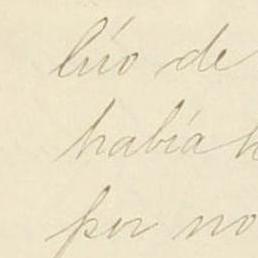 lúo de
había h
por no